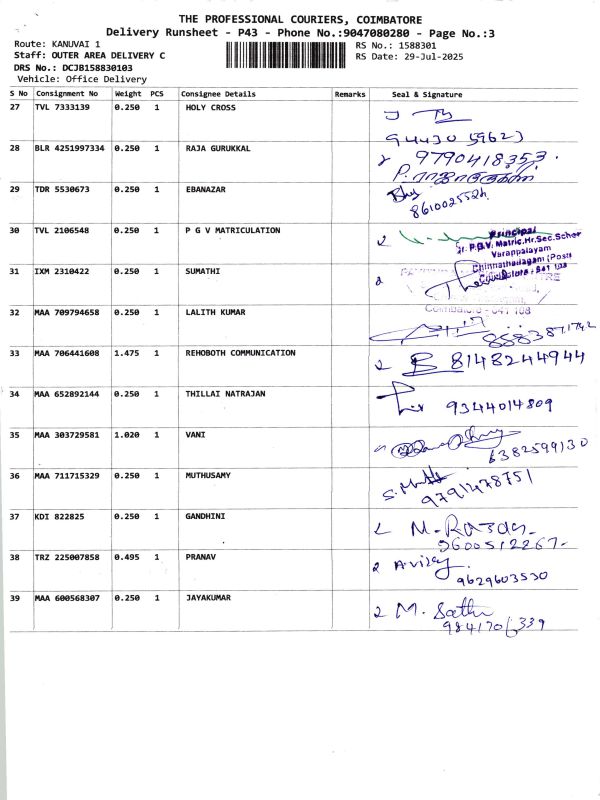 THE PROFESSIONAL COURIERS, COIMBATORE
Delivery Runsheet - P43 - Phone No.:9047080280 - Page No.:3
Route: KANUVAI 1
RS No.: 1588301
Staff: OUTER AREA DELIVERY C
RS Date: 29-Jul-2025
DRS No.: DCJB158830103
Vehicle: Office Delivery
S No Consignment No Weight PCS Consignee Details Remarks Seal & Signature
27 TVL 7333139 0.250 1 HOLY CROSS
94430 59623
28 BLR 4251997334 0.250 1 RAJA GURUKKAL
9790418353.
29 TDR 5530673 0.250 1 EBANAZAR
8610025524
30 TVL 2106548 0.250 1 P G V MATRICULATION
Principal
P.G.V. Matric.Hr.Sec.School
Varappalayam
Chinnathadagam (Post)
Coimbatore - 641 108
31 IXM 2310422 0.250 1 SUMATHI
Coimbatore - 641 108
32 MAA 709794658 0.250 1 LALITH KUMAR
8883871742
33 MAA 706441608 1.475 1 REHOBOTH COMMUNICATION
8148244944
34 MAA 652892144 0.250 1 THILLAI NATRAJAN
9344014809
35 MAA 303729581 1.020 1 VANI
6382599130
36 MAA 711715329 0.250 1 MUTHUSAMY
9791478751
37 KDI 822825 0.250 1 GANDHINI
9600512267.
38 TRZ 225007858 0.495 1 PRANAV
A.vijay
9629603530
39 MAA 600568307 0.250 1 JAYAKUMAR
M. Sathi
9841706339